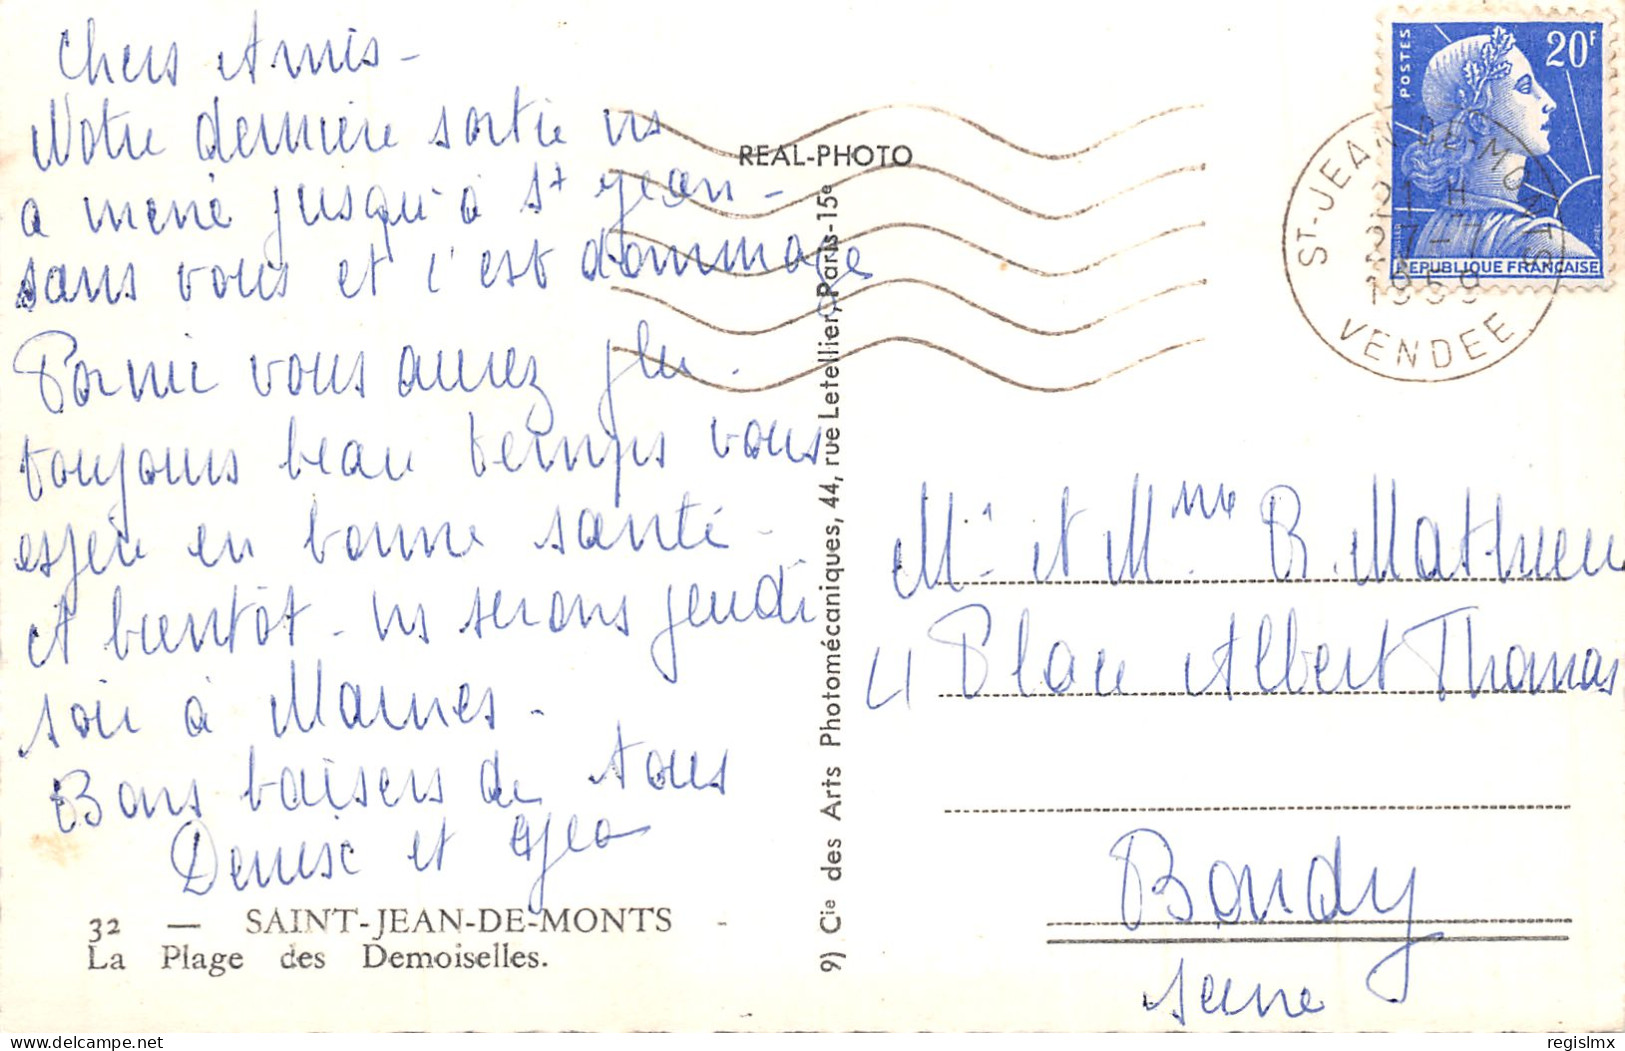 Chers Amis -
Notre dernière sortie ns
a mené jusqu'à St Jean -
sans vous et c'est dommage
Pornic vous aurez plu.
toujours beau temps vous
espère en bonne santé -
et bientôt - ns serons jeudi
soir à Marnes -
Bons baisers de tous
Denise et Geo
32 — SAINT-JEAN-DE-MONTS -
La Plage des Demoiselles.
REAL-PHOTO
9) Cie des Arts Photomécaniques, 44, rue Letellier, Paris-15e
POSTES
20F
REPUBLIQUE FRANÇAISE
ST-JEAN-DE-MONTS
21 H
27-7
1959
VENDEE
Mr et Mme R. Mathieu
4 Place Albert Thomas
Bondy
Seine
regislmx
© delcampe.net